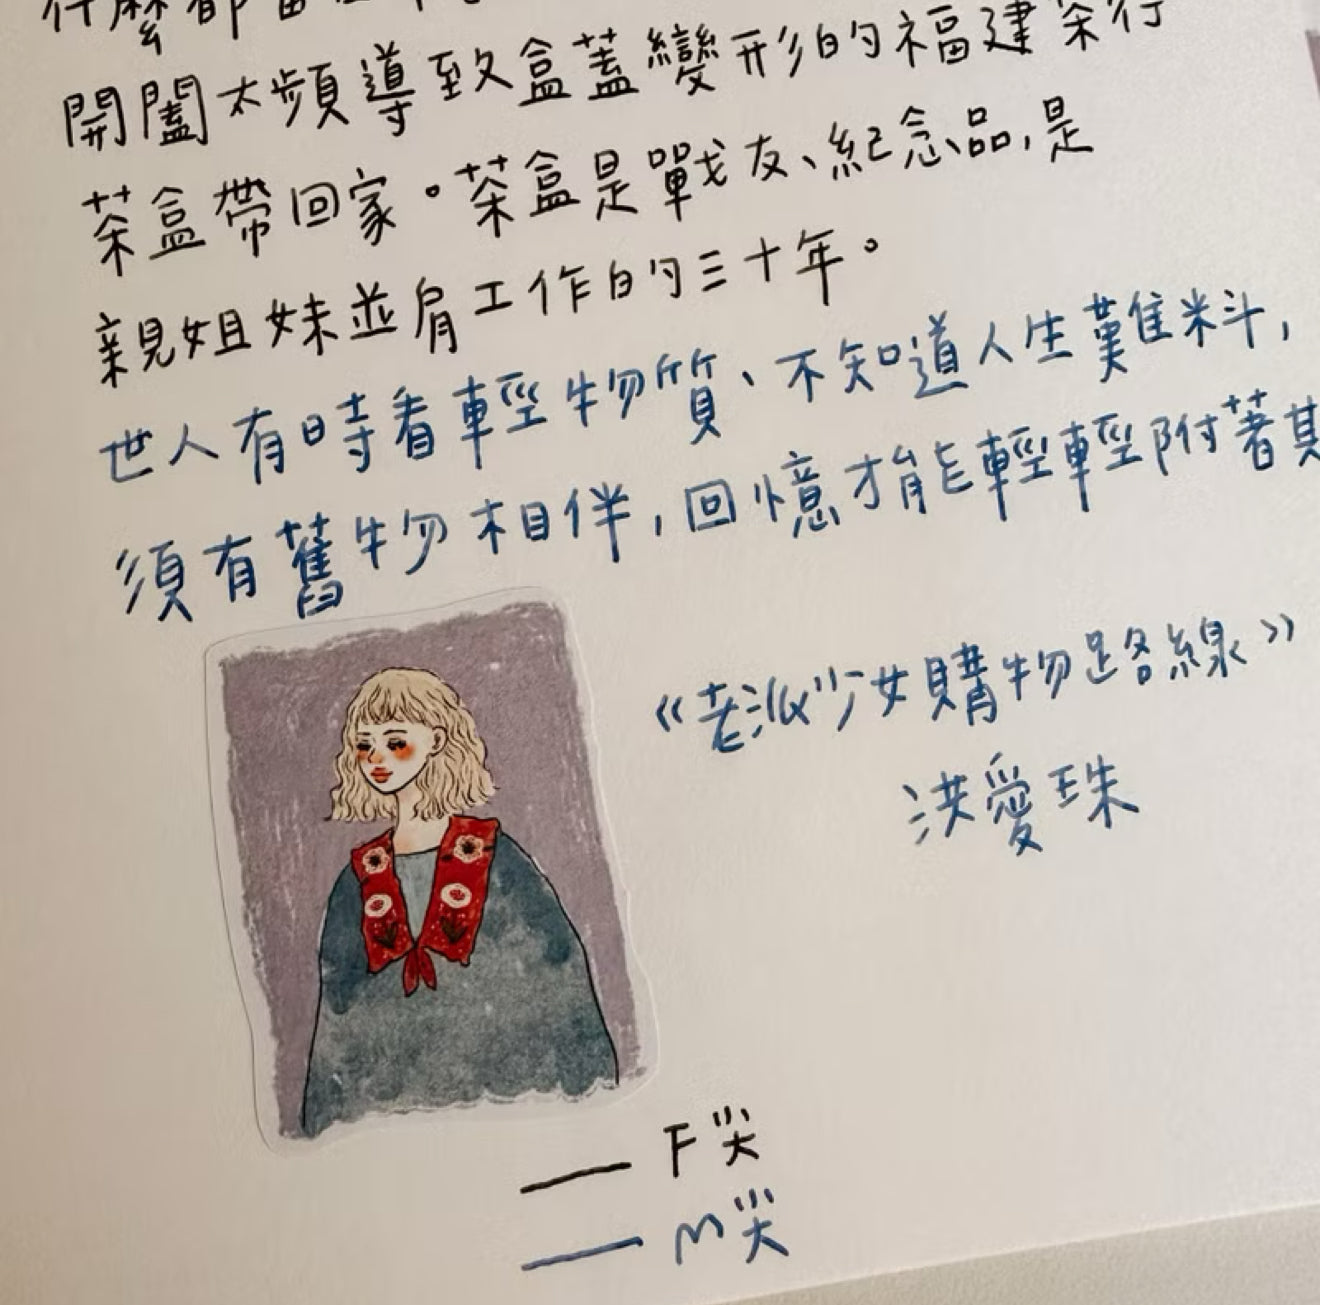 什麼都留
開闔太頻導致盒蓋變形的福建茶行
茶盒帶回家。茶盒是戰友、紀念品,是
親姐妹並肩工作的三十年。
世人有時看輕物質、不知道人生難料,
須有舊物相伴,回憶才能輕輕附著其
《老派少女購物路線》
洪愛珠
F尖
M尖